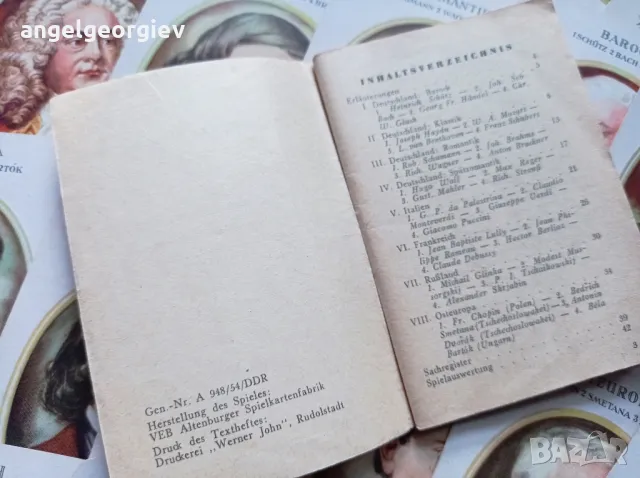 angelgeorgiev
MANTI
BARO
TSCHÜTZ 2 BACH
Gen.-Nr. A 948/54/DDR
Herstellung des Spieles:
VEB Altenburger Spielkartenfabrik
Druck des Textheftes:
Druckerei „Werner John", Rudolstadt
INHALTSVERZEICHNIS
Erläuterungen
I. Deutschland: Barock
1. Heinrich Schütz — 2. Joh. Seb.
Bach — 3. Georg Fr. Händel — 4. Chr.
W. Gluck
II. Deutschland: Klassik
1. Joseph Haydn — 2. W. A. Mozart
3. L. van Beethoven — 4. Franz Schubert
III. Deutschland: Romantik
1. Rob. Schumann — 2. Joh. Brahms
3. Rich. Wagner — 4. Anton Bruckner
IV. Deutschland: Spätromantik
1. Hugo Wolf — 2. Max Reger
3. Gust. Mahler — 4. Rich. Strauß
V. Italien
1. G. P. da Palestrina — 2. Claudio
Monteverdi — 3. Giuseppe Verdi
4. Giacomo Puccini
VI. Frankreich
1. Jean Baptiste Lully — 2. Jean Phi-
lippe Rameau — 3. Hector Berlioz
4. Claude Debussy
VII. Rußland
1. Michail Glinka — 2. Modest Mus-
sorgskij — 3. P. I. Tschaikowskij
4. Alexander Skrjabin
VIII. Osteuropa
1. Fr. Chopin (Polen) — 2. Bedrich
Smetana (Tschechoslowakei) — 3. Antonin
Dvořák (Tschechoslowakei) — 4. Béla
Bartók (Ungarn) 39
Sachregister 42
Spielauswertung
EURO
2 SMETANA
BAZAR
bg